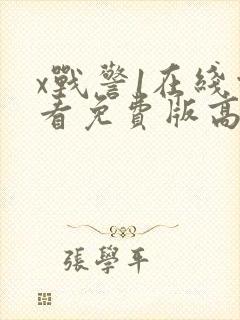 x戰警1在綫
看免費版高
張學平